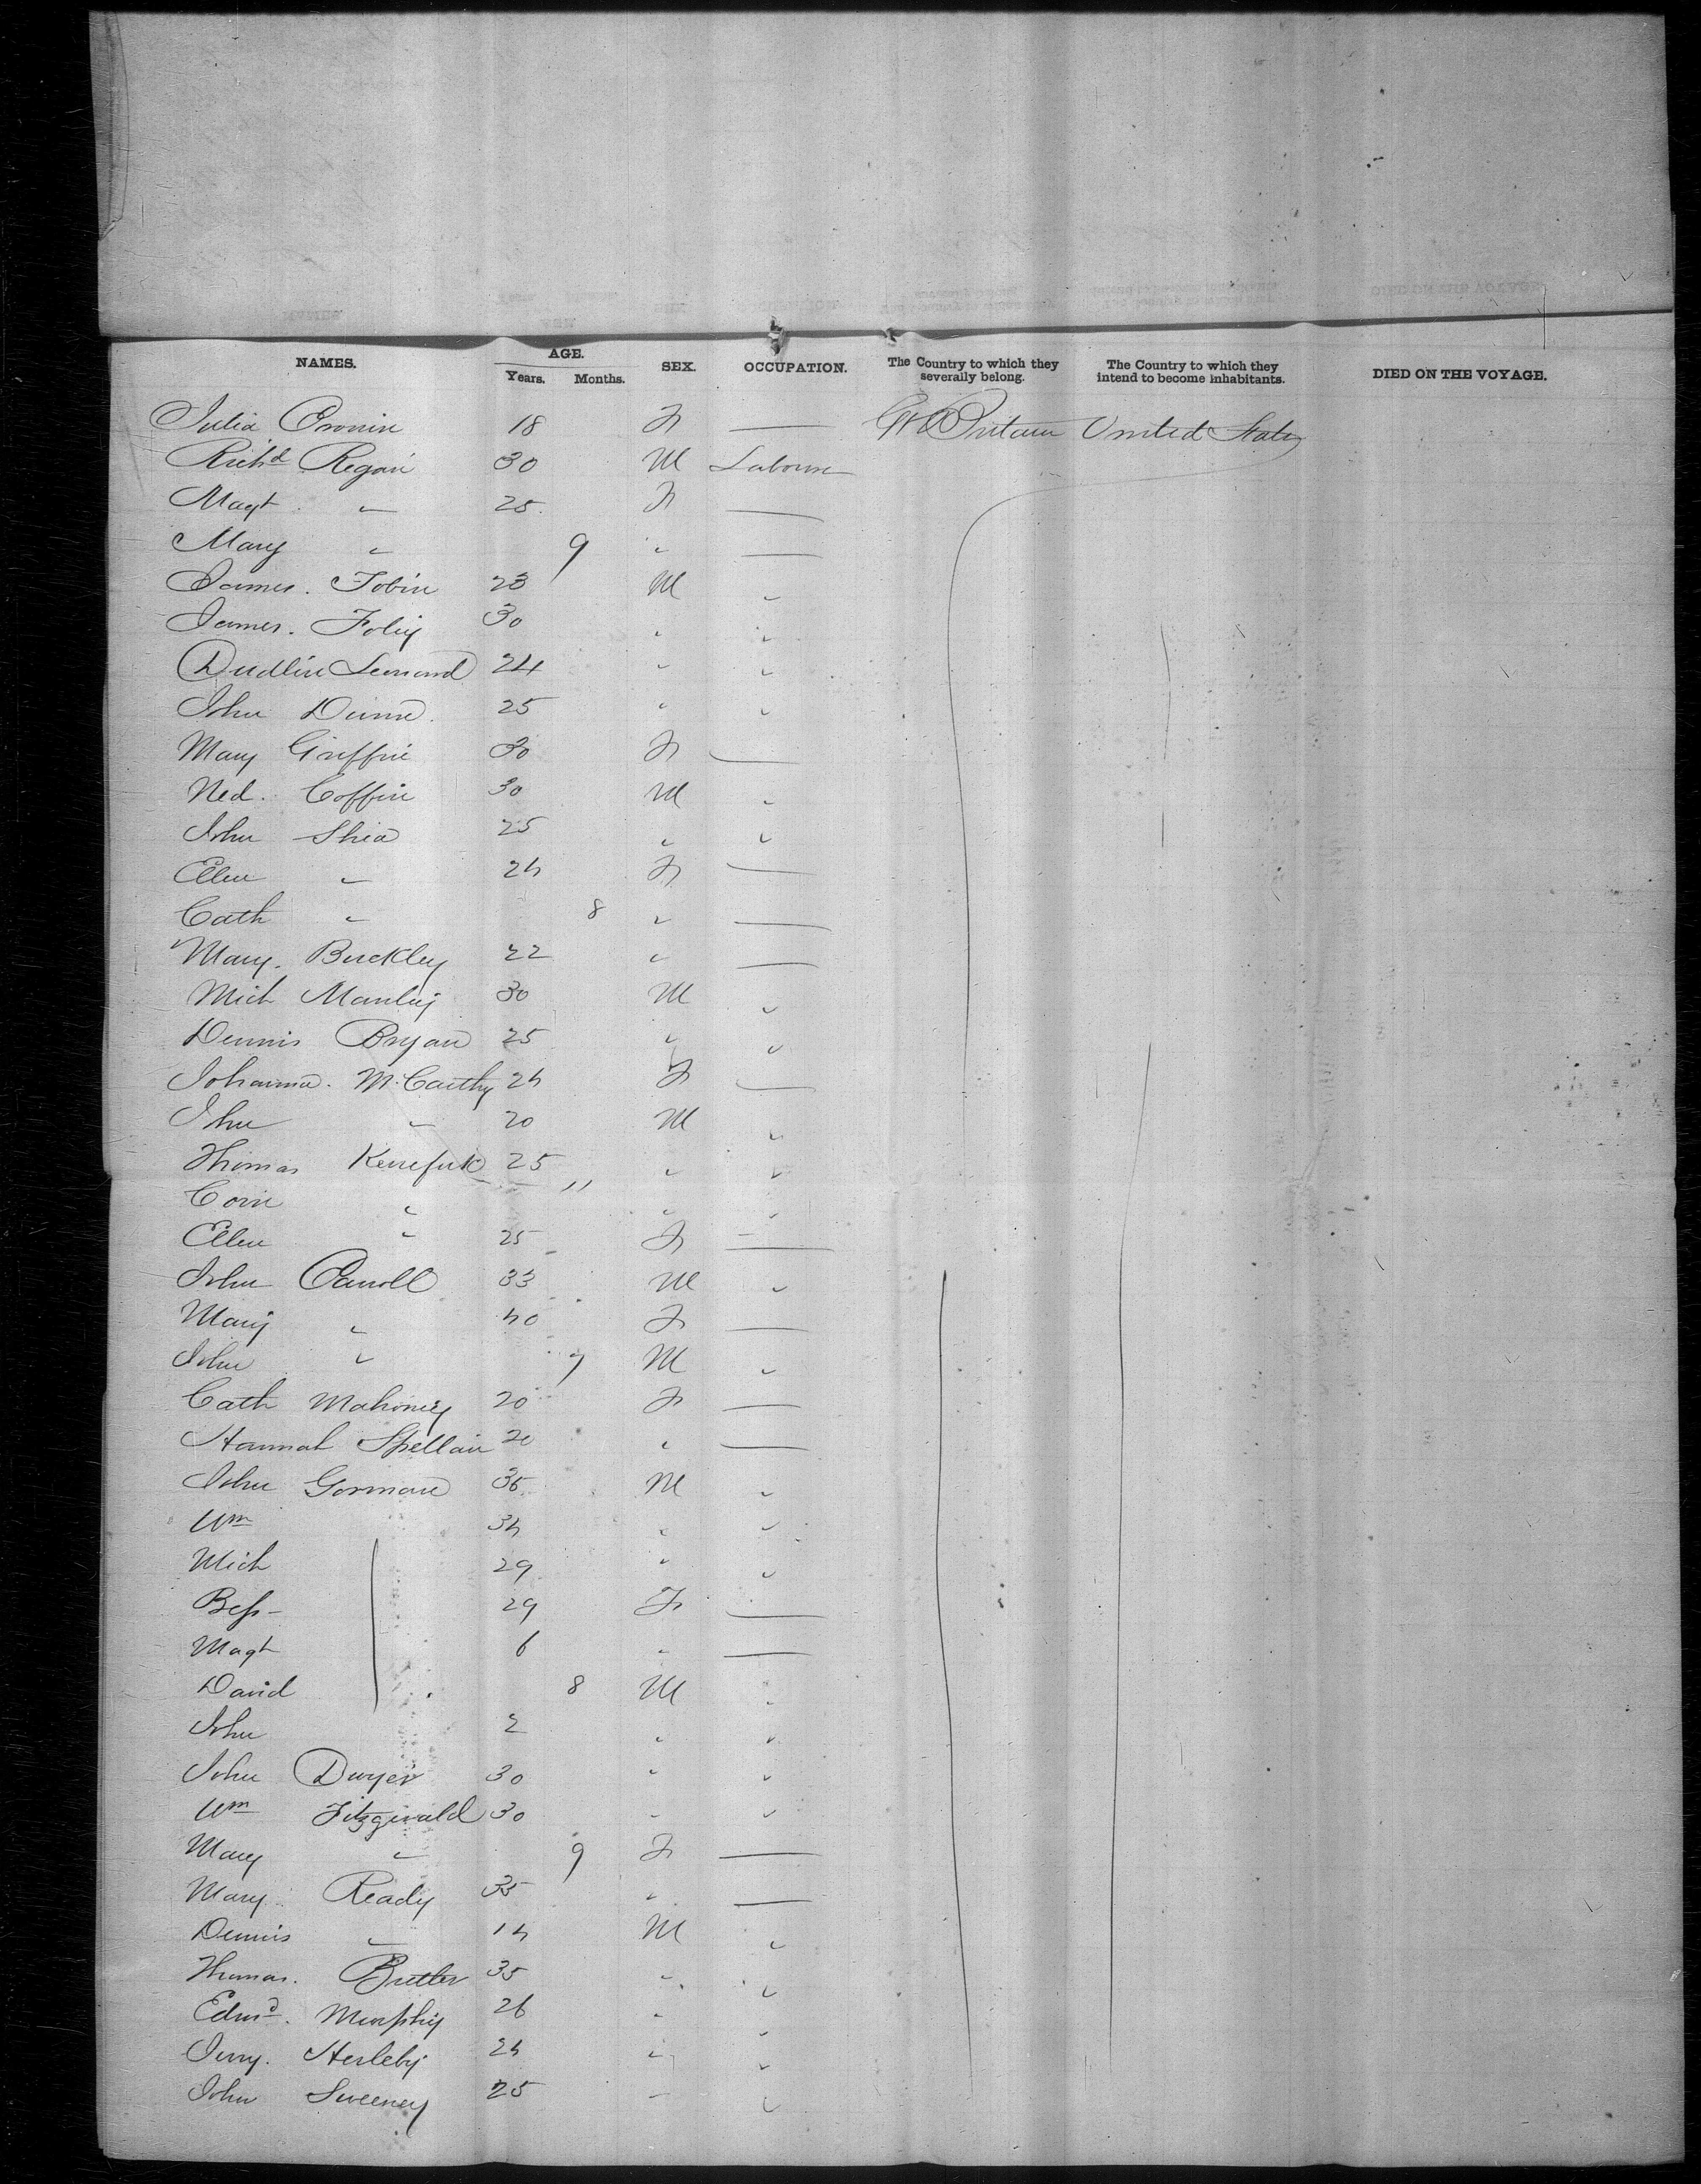 NAMES. AGE. Years. Months. SEX. OCCUPATION. The Country to which they severally belong. The Country to which they intend to become inhabitants. DIED ON THE VOYAGE.
Julia Cronin 18 F — Gt Britain United States
Richd Regan 30 M Labourer
Magt " 25 F —
Mary " 9 " —
James. Tobin 23 M "
James. Foley 30 " "
Leonard 24 " "
John Dunne 25 " "
Mary Griffin 30 F —
Ned. Coffin 30 M "
John Shea 25 " "
Ellen " 24 F —
Cath " 8 " —
Mary. Buckley 22 " —
Mich Manley 30 M "
Dennis Bryan 25 " "
Johanna. McCarthy 24 F —
Jhn " 20 M "
Thomas 25 " "
Corn " 11 " "
Ellen " 25 F —
John Carroll 33 M "
Mary " 40 F —
John " 7 M "
Cath Mahoney 20 F —
Hannah Spellain 20 " —
John Gorman 35 M "
Wm 34 " "
Mich 29 " "
Bess 29 F —
Magt 6 " —
David 8 M "
John 2 " "
John Dwyer 30 " "
Wm Fitzgerald 30 " "
Mary " 9 F —
Mary Ready 35 " —
Dennis " 14 M "
Thomas. Butler 35 " "
Edmd. Murphy 26 " "
Jerry. 24 " "
John Sweeney 25 " "